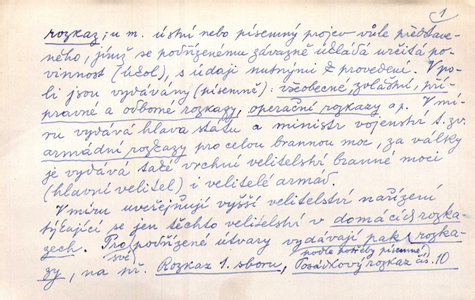 1
rozkaz; u m. ústní nebo písemný projev vůle představe-
ného, jímž se podřízenému závazně ukládá určitá po-
vinnost (úkol), s údaji nutnými k provedení. V po-
li jsou vydávány (písemně): všeobecné, zvláštní, pří-
pravné a odborné rozkazy, operační rozkazy a p. V mí-
ru vydává hlava státu a ministr vojenství t. zv.
armádní rozkazy pro celou brannou moc, za války
je vydává také vrchní velitelství branné moci
(hlavní velitel) i velitelé armád.
V míru uveřejňují vyšší velitelství nařízení
týkající se jen těchto velitelství v domácích rozka-
zech. Pro své podřízené útvary vydávají pak rozka-
podle potřeby písemné
zy, na př. Rozkaz 1. sboru, Posádkový rozkaz čís. 10